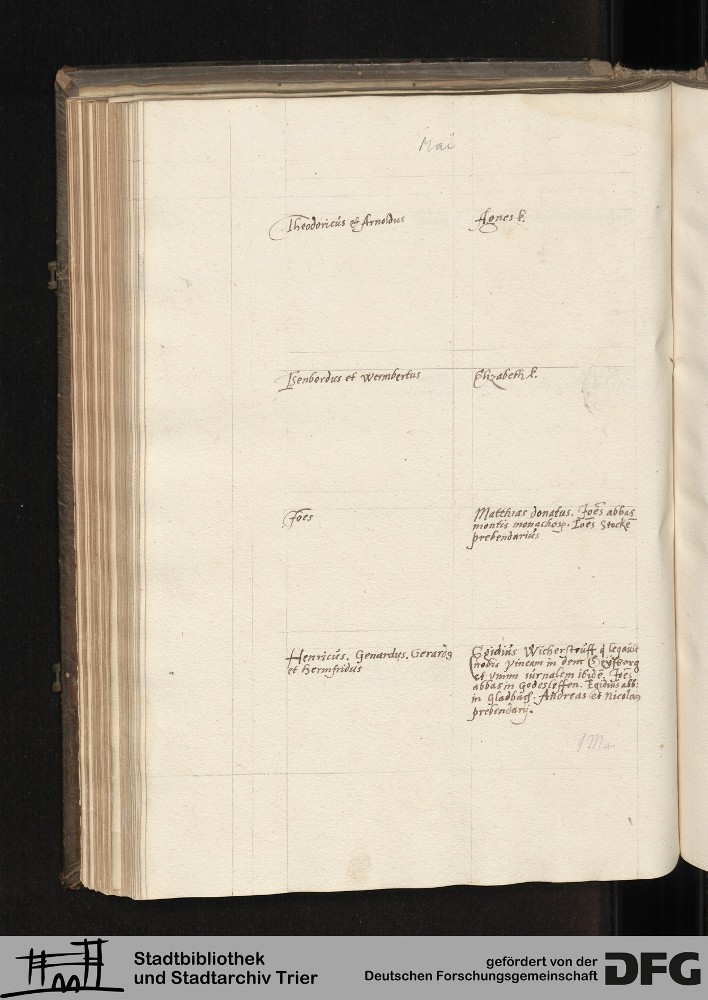 Mai
Theodoricus et Arnoldus
Agnes l.
Isenbordus et wermbertus
Elizabeth l.
Joes
Matthias donatus. Joes abbas
montis monachor. Joes Stocke
prebendarius
Henricus. Genardus. Gerardg
et Hermfridus
Egidius Wicherstruff q legauit
nobis vineam in dem
et vnum iurnalem ibide. Joes
abbas in Godesleffen. Egidius abb:
in gladbach. Andreas et Nicolaus
prebendarij.
Stadtbibliothek
und Stadtarchiv Trier
gefördert von der
Deutschen Forschungsgemeinschaft
DFG